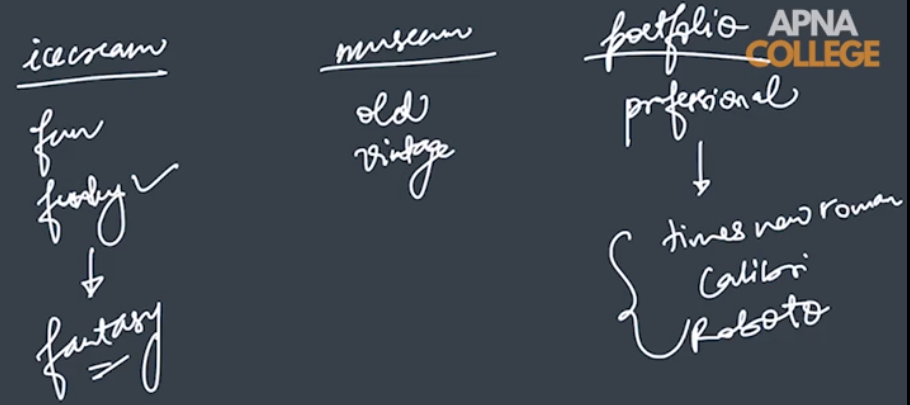 icecream
fun
funky ✓
↓
fantasy
museum
old
vintage
portfolio
professional
↓
times new roman
Calibri
Roboto
APNA
COLLEGE